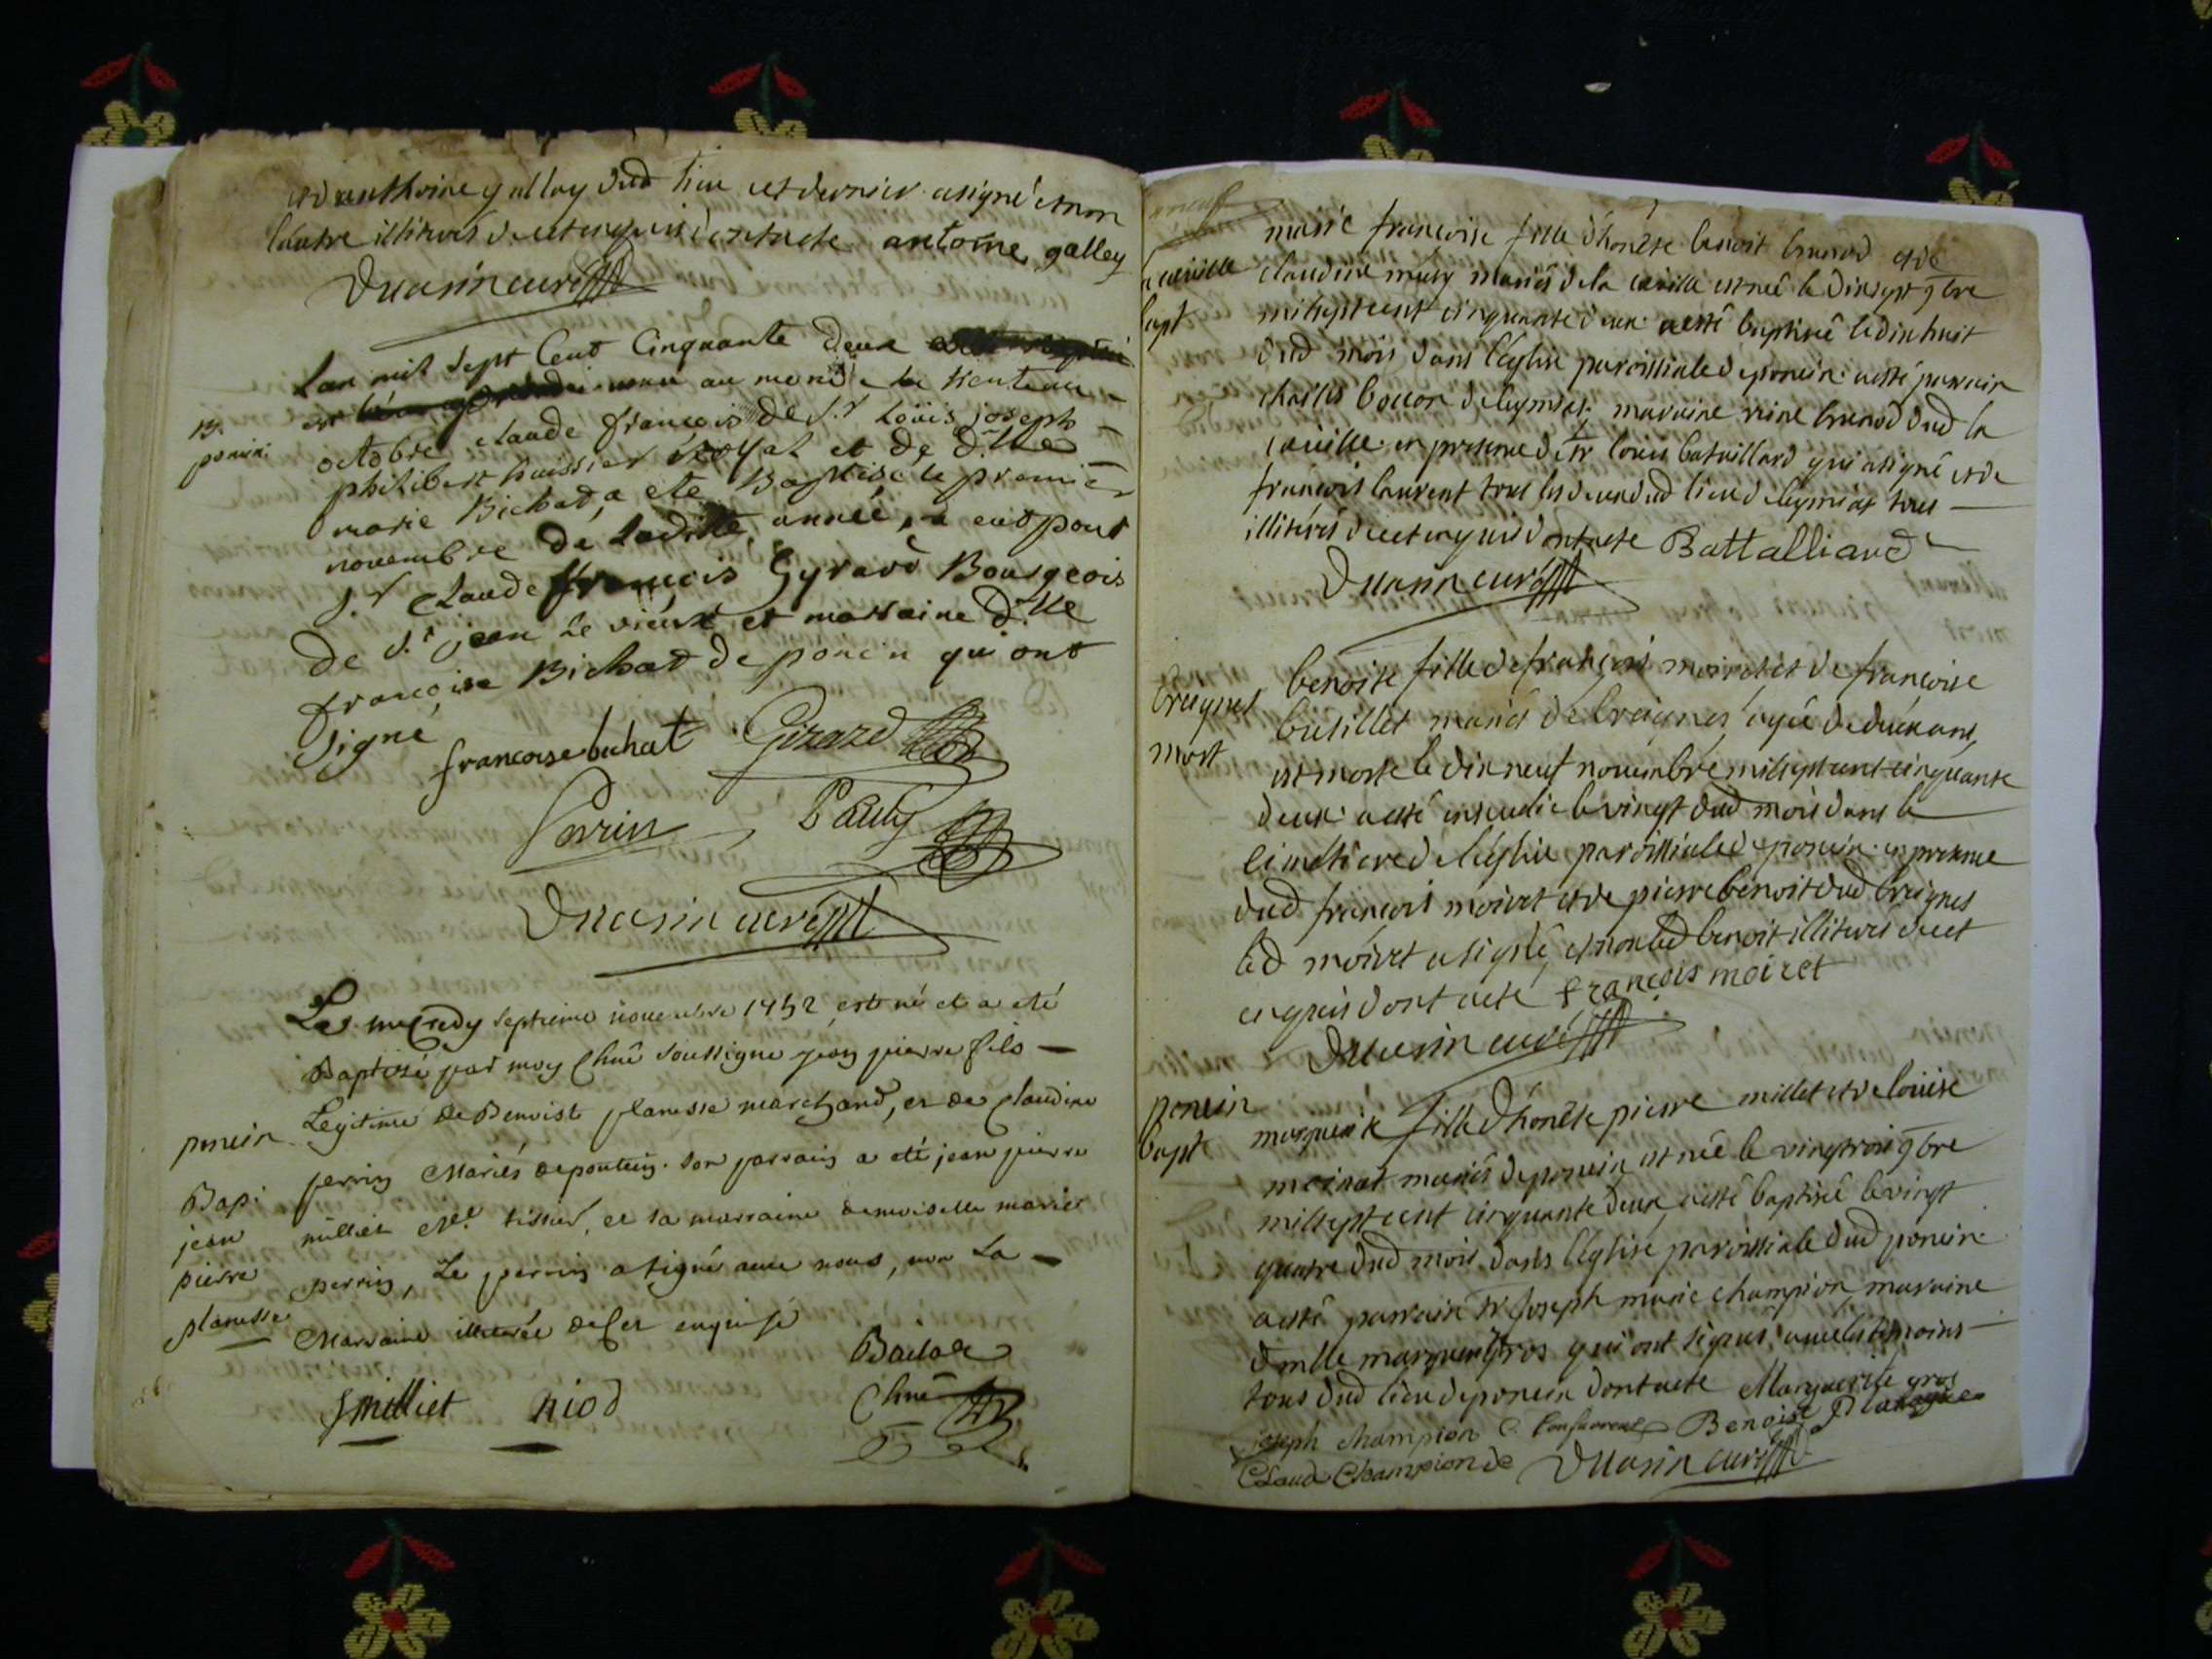 et danthoine galley dud lieu cet dernier a signé et non
lautre illiterés de cet enquis dont acte antoine galley
Duasin curé
Lan mil sept Cent Cinquante deux
est venu au monde le trente un
B.
poncin.
octobre claude françois de S.r Loüis joseph
philibert huissier Royal et de d.lle
marie Bichat, a ete Baptisé le premier
novembre de Laditte année, a eut pour
S.r Claude françois Gyrard Bourgeois
de S.t jean le vieux et marraine d.lle
françoise Bichat de poncin qui ont
signé
francoise bichat Girard
Perrin Pauly
Duasin curé
Le mecredy septieme novembre 1752 est né et a eté
Baptisé par moy soussigné jean pierre fils
Legitime de Benoist planesse marchand, et de claudine
perrin Mariés de poncin. son parrain a eté jean pierre
milliet tissier, et sa marraine demoiselle marie
perrin, Le parrin a signé avec nous, non La
Marraine illiterée de ce enquise
poncin
Bap:
jean
pierre
planesse
J milliet niod
marie francoise fille d'honête benoit brunod et de
claudine mariés de la cueille est née le dixsept 9bre
la cueille
bapt
mil sept cent cinquante deux a esté baptisée le dix huit
dud mois dans léglise paroissiale de poncin a esté parrain
charles bouon de leymiat maraine reine brunod dud la
cueille en presence de Sr louis bataillard qui a signé et de
françois laurent tous les deux dud lieu de leymiat tous
illiterés de cet enquis dont acte Battalliard
Duasin curé
breignes
mort
benoite fille de françois moiret et de francoise
butillet mariés de breignes agée de deux ans,
est morte le dix neuf novembre mil sept cent cinquante
deux a esté inhumée le vingt dud mois dans le
cimetiere de léglise paroissiale de poncin en presence
dud françois moiret et de pierre benoit dud breignes
led moiret a signé, et non led benoit illiteré de cet
enquis dont acte françois moiret
Duasin curé
poncin
bapt
marguerite fille d'honête pierre millet et de louise
moinat mariés de poncin est née le vingt trois 9bre
mil sept cent cinquante deux, a esté baptisée le vingt
quatre dud mois dans léglise paroissiale dud poncin
a esté parrain Sr joseph marie champion maraine
dmlle marguerite gros qui ont signés avec les témoins
tous dud lieu de poncin dont acte Marguerite gros
joseph champion Benoist
Claude Championde Duasin curé